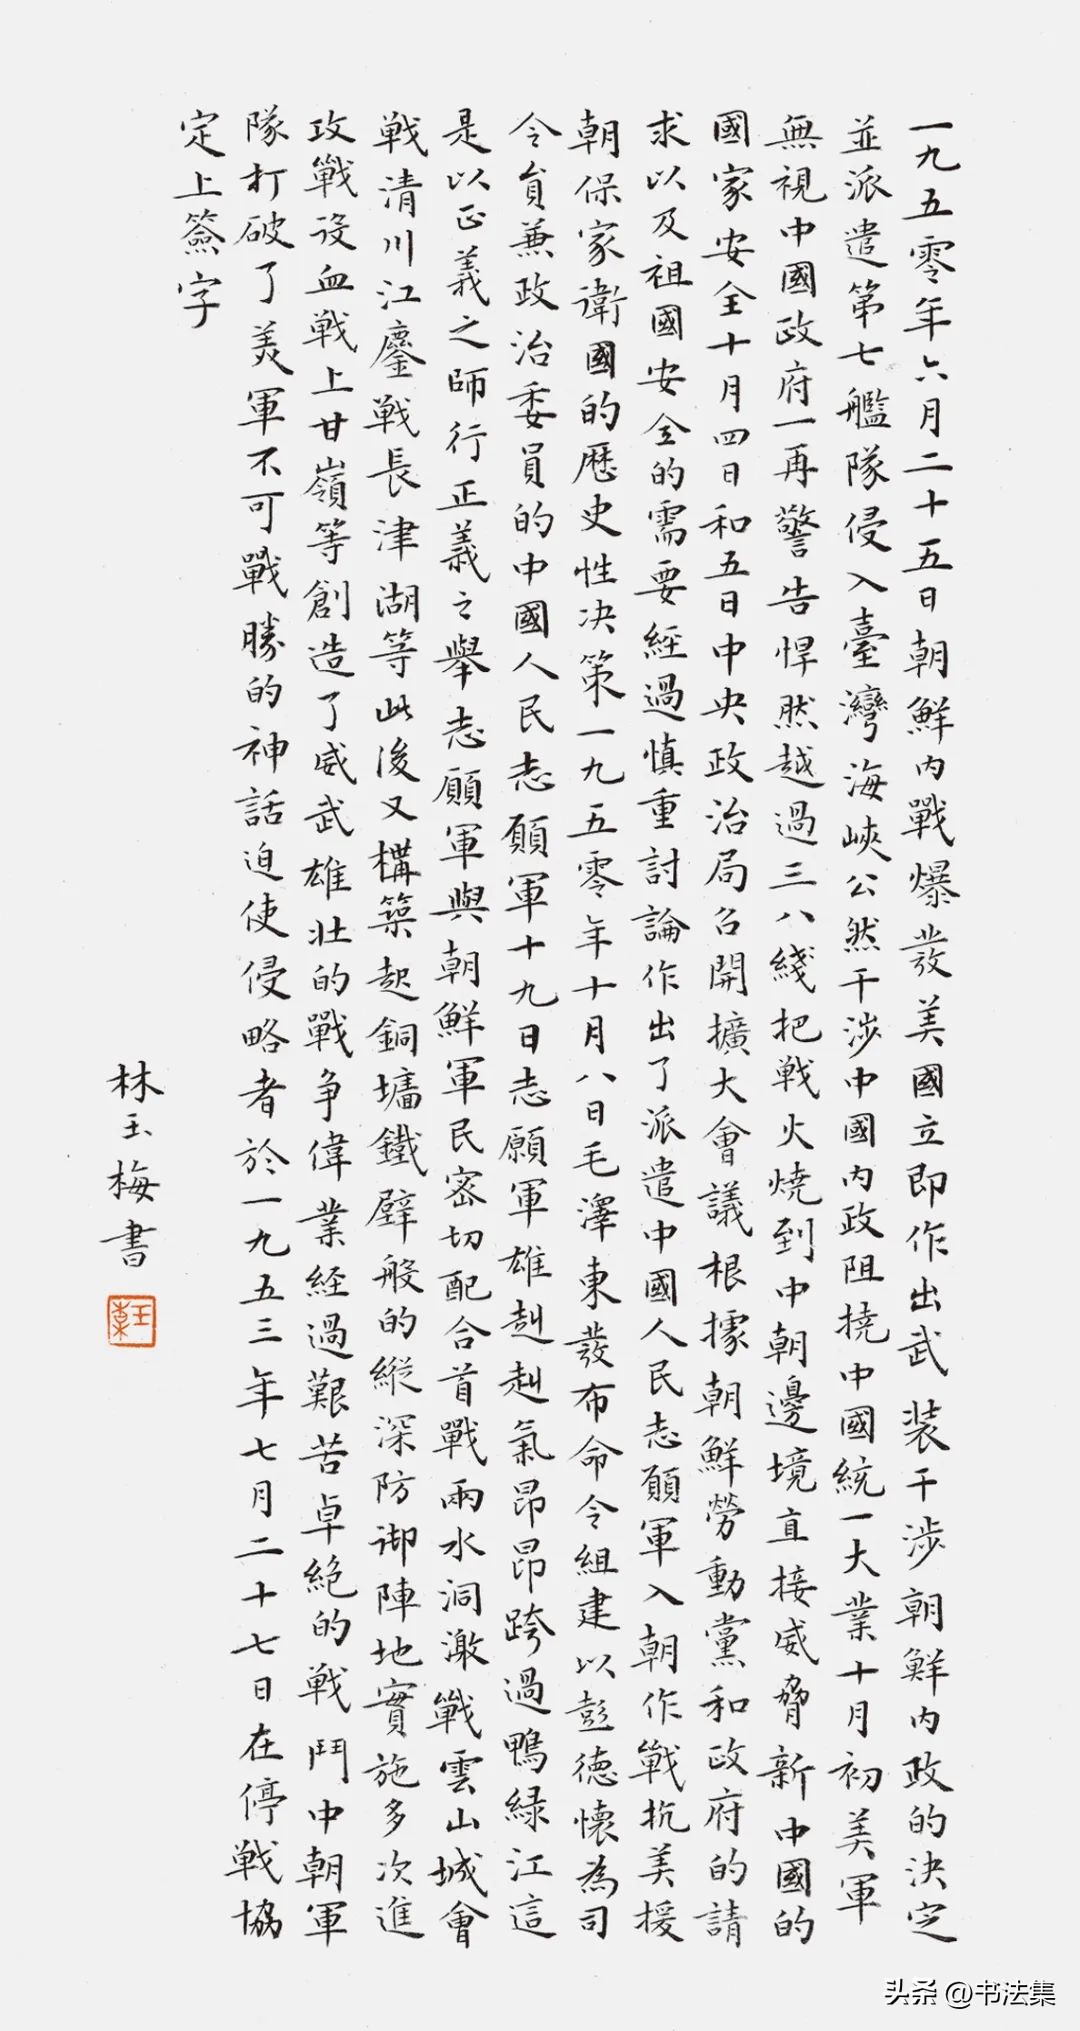 一九五零年六月二十五日朝鮮内戰爆發美國立即作出武装干涉朝鮮内政的決定
並派遣第七艦隊侵入臺灣海峽公然干涉中國内政阻撓中國統一大業十月初美軍
無視中國政府一再警告悍然越過三八綫把戦火燒到中朝邊境直接威脅新中國的
國家安全十月四日和五日中央政治局召開擴大會議根據朝鮮勞動黨和政府的請
求以及祖國安全的需要經過慎重討論作出了派遣中國人民志願軍入朝作戰抗美援
朝保家衛國的歷史性决策一九五零年十月八日毛澤東發布命令組建以彭德懷為司
令員兼政治委員的中國人民志願軍十九日志願軍雄赳赳氣昂昂跨過鴨緑江這
是以正義之師行正義之舉志願軍與朝鮮軍民密切配合首戰兩水洞激戰雲山城會
戦清川江鏖戦長津湖等此後又構築起銅墻鐵壁般的縱深防御陣地實施多次進
攻戰役血戦上甘嶺等創造了威武雄壯的戰争偉業經過艱苦卓絶的戦鬥中朝軍
隊打破了美軍不可戰勝的神話迫使侵略者於一九五三年七月二十七日在停戦協
定上簽字
林玉梅書
头条@书法集